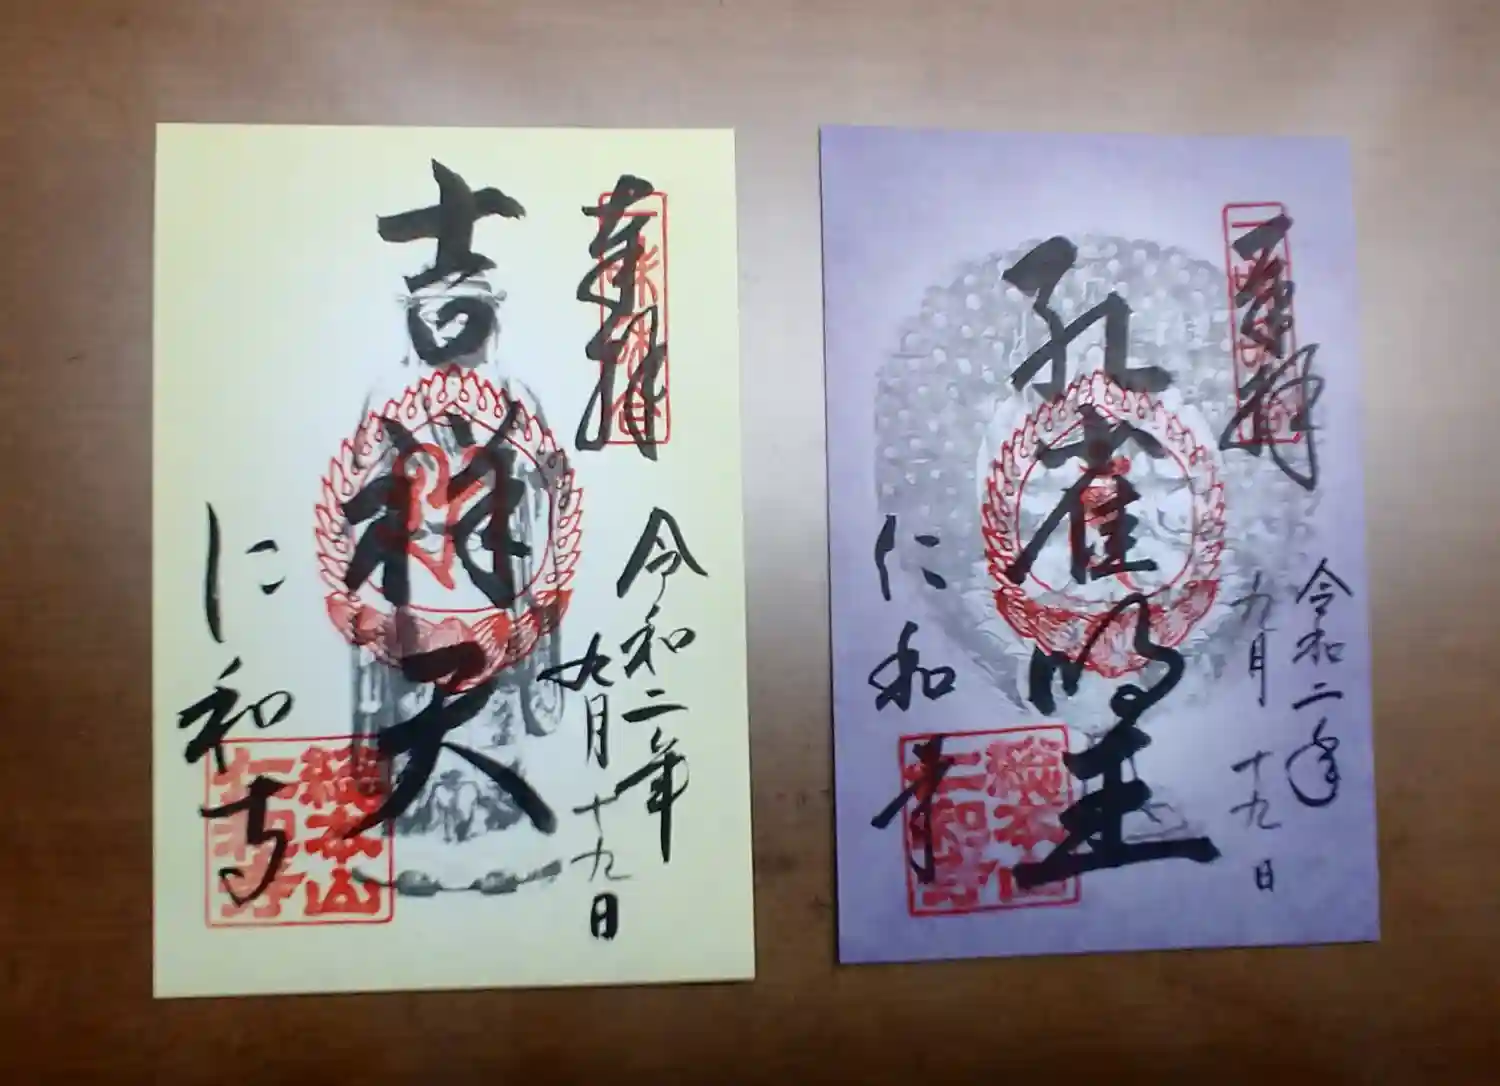 奉拝
令和二年
九月十九日
吉祥天
仁和寺
総本山
仁和寺
奉拝
令和二年
九月十九日
孔雀明王
仁和寺
総本山
仁和寺